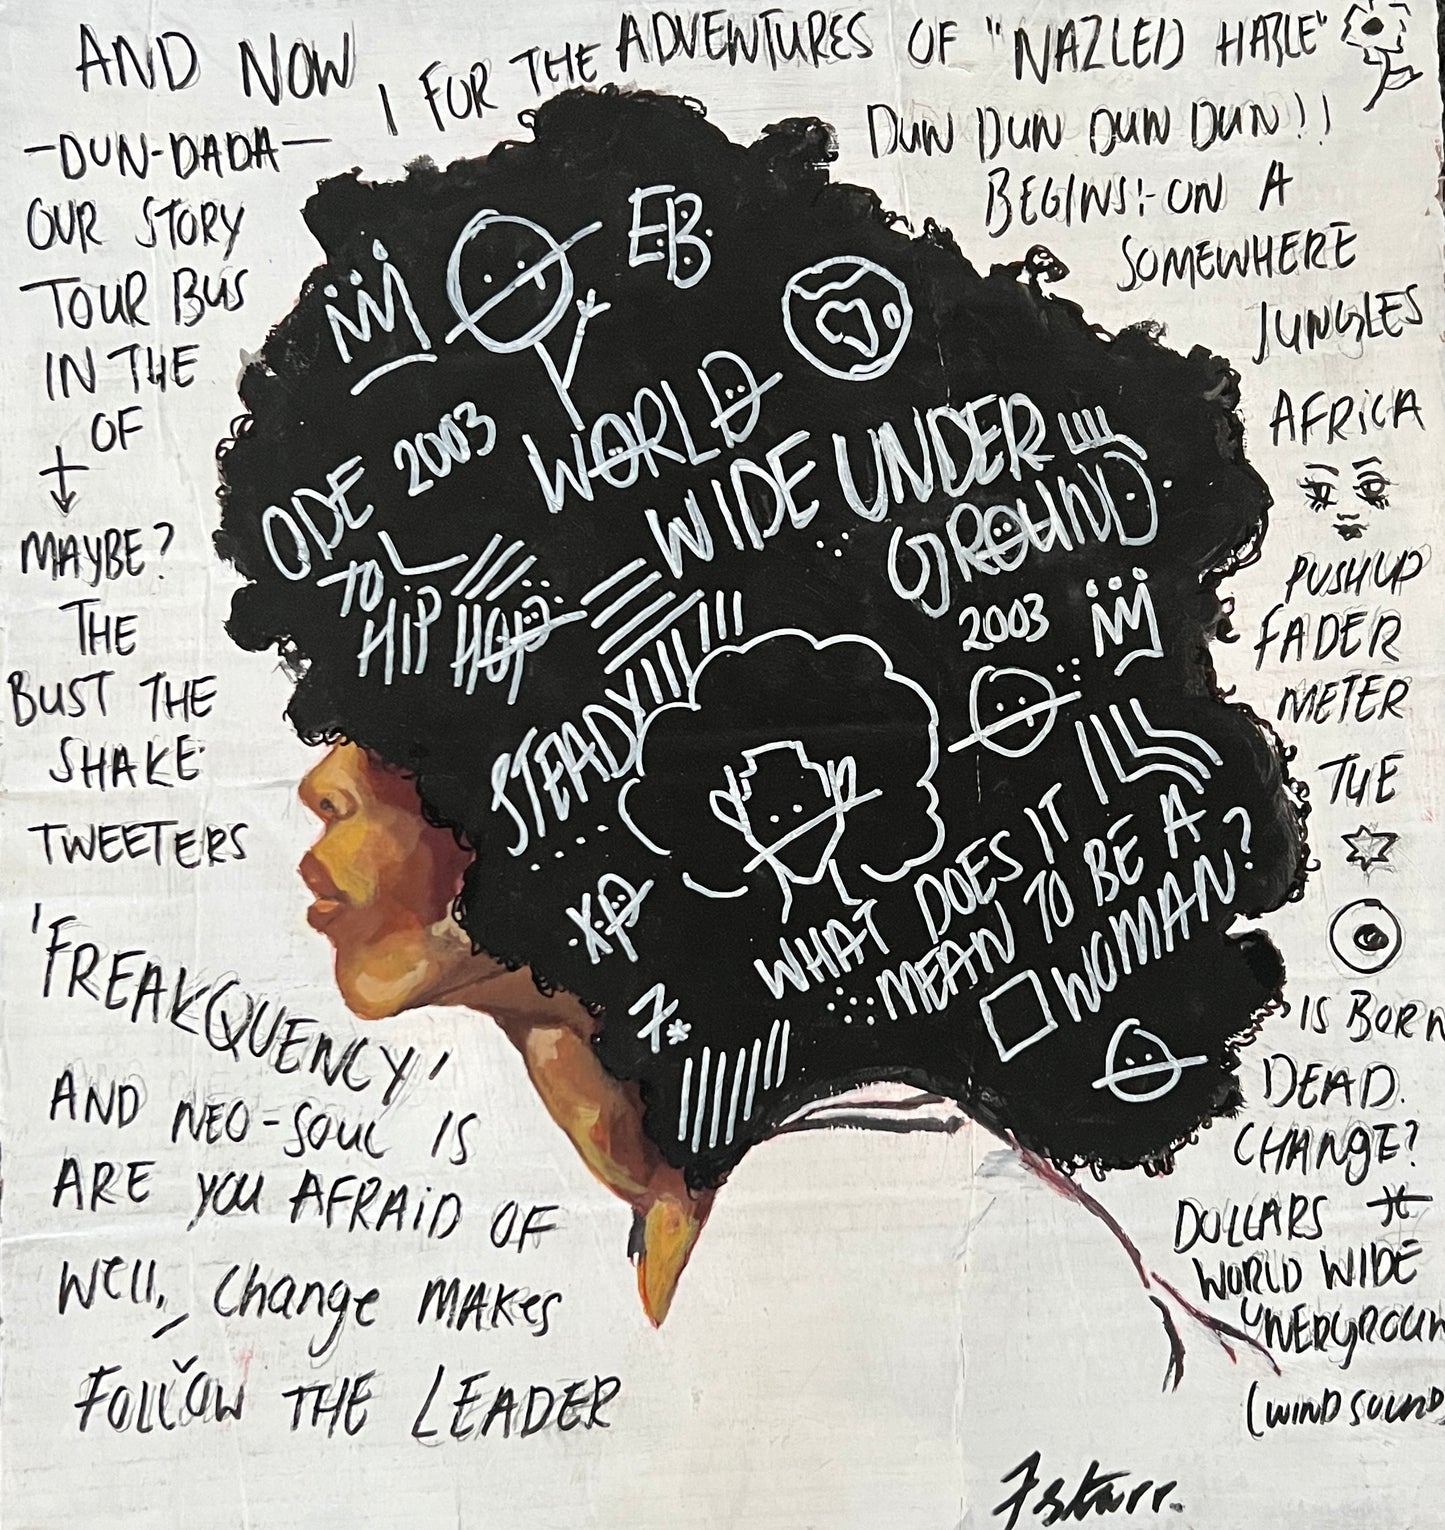 AND NOW
! FOR THE ADVENTURES OF "NAZLED HAZLE"
-DUN-DADA-
OUR STORY
TOUR BUS
IN THE
OF
MAYBE?
THE
BUST THE
SHAKE
TWEETERS
'FREAKQUENCY'
AND NEO-SOUL IS
ARE YOU AFRAID OF
Well, change MAKes
FOLLOW THE LEADER
DUN DUN DUN DUN!!
BEGINS:- ON A
SOMEWHERE
JUNGLES
AFRICA
PUSHUP
FADER
METER
THE
IS BORN
DEAD.
CHANGE?
DOLLARS
WORLD WIDE
UNERGROUN
(WIND SOUND
EB
ODE 2003
TO
HIP HOP
WORLD
WIDE UNDER
GROUND
2003
STEADY
XP
7*
WHAT DOES IT
MEAN TO BE A
WOMAN?
7starr.